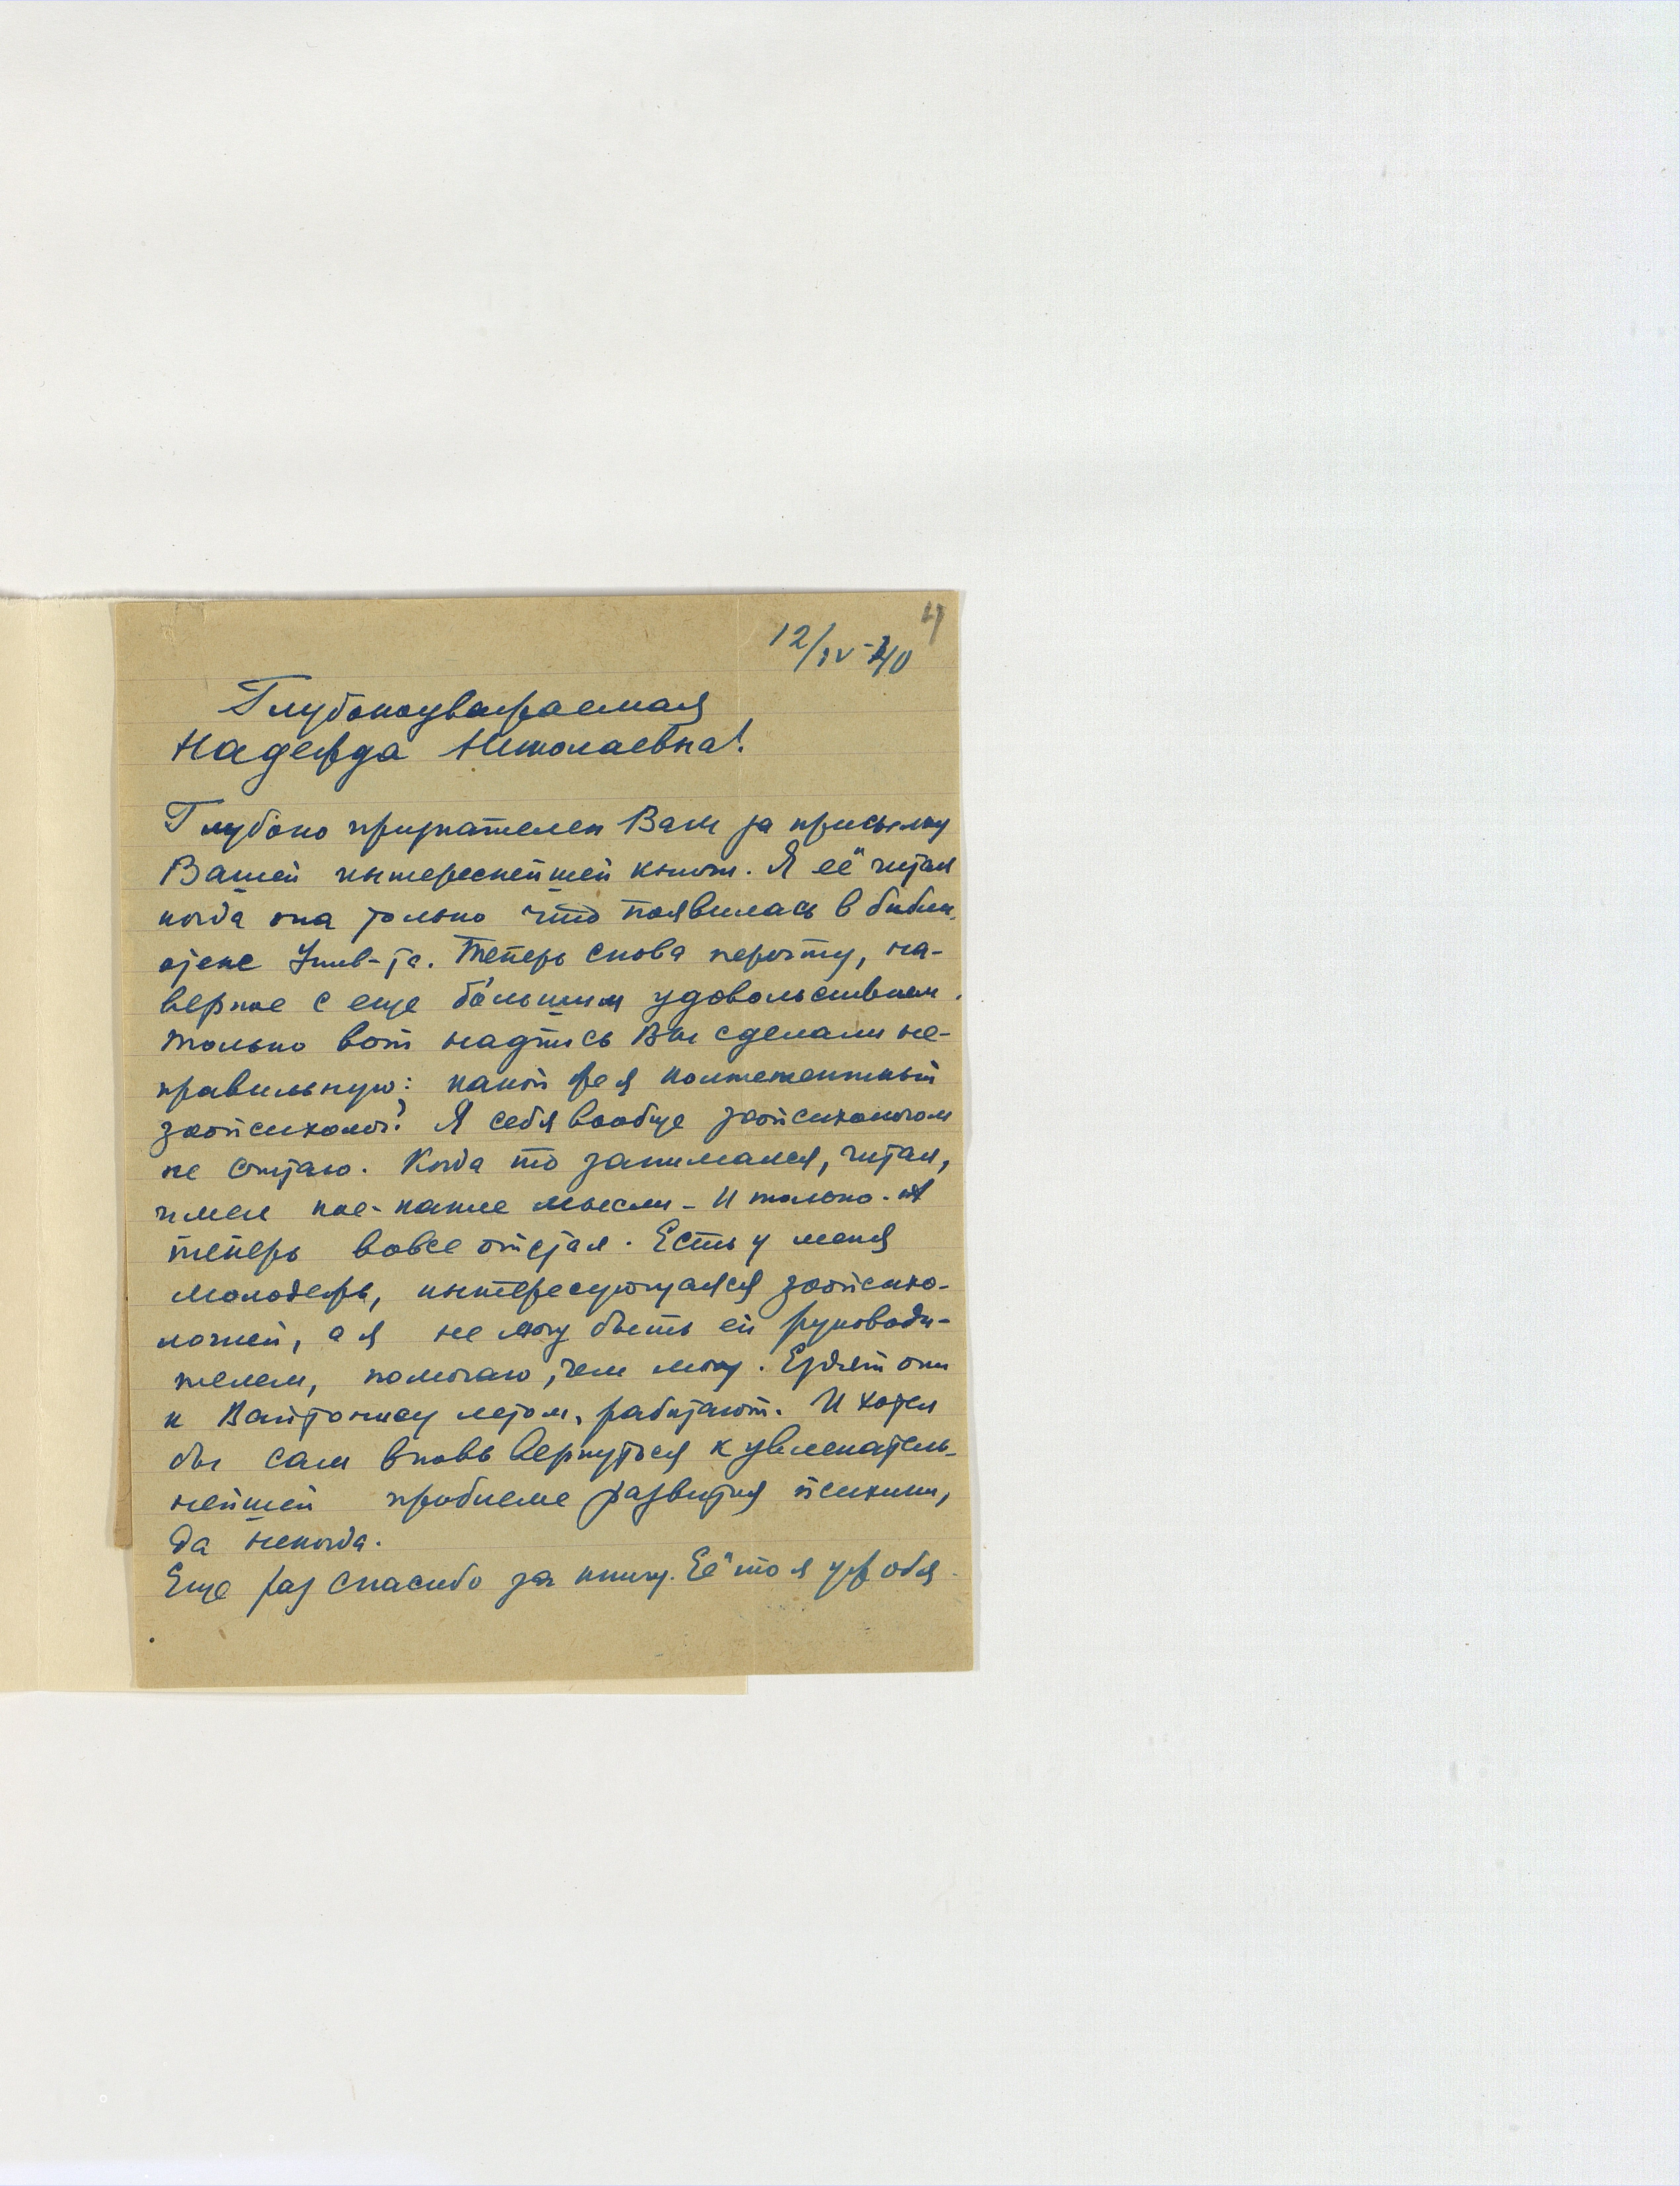 4
12/IV-40
Глубокоуважаемая
Надежда Николаевна!
Глубоко признателен Вам за присылку
Вашей интереснейшей книги. Я её читал
когда она только что появилась в библи-
отеке Унив-та. Теперь снова перечту, на-
верное с еще бо́льшим удовольствием.
Только вот надпись Вы сделали не-
правильную: какой же я компетентный
зоопсихолог? Я себя вообще зоопсихологом
не считаю. Когда то занимался, читал,
имел кое-какие мысли - и только. А
теперь вовсе отстал. Есть у меня
молодежь, интересующаяся зоопсихо-
логией, а я не могу быть ей руководи-
телем, помогаю, чем могу. Ездят они
к Войтонису летом, работают. И хотел
бы сам вновь вернуться к увлекатель-
нейшей проблеме развития психики,
да некогда.
Еще раз спасибо за книгу. Её то я уж обя